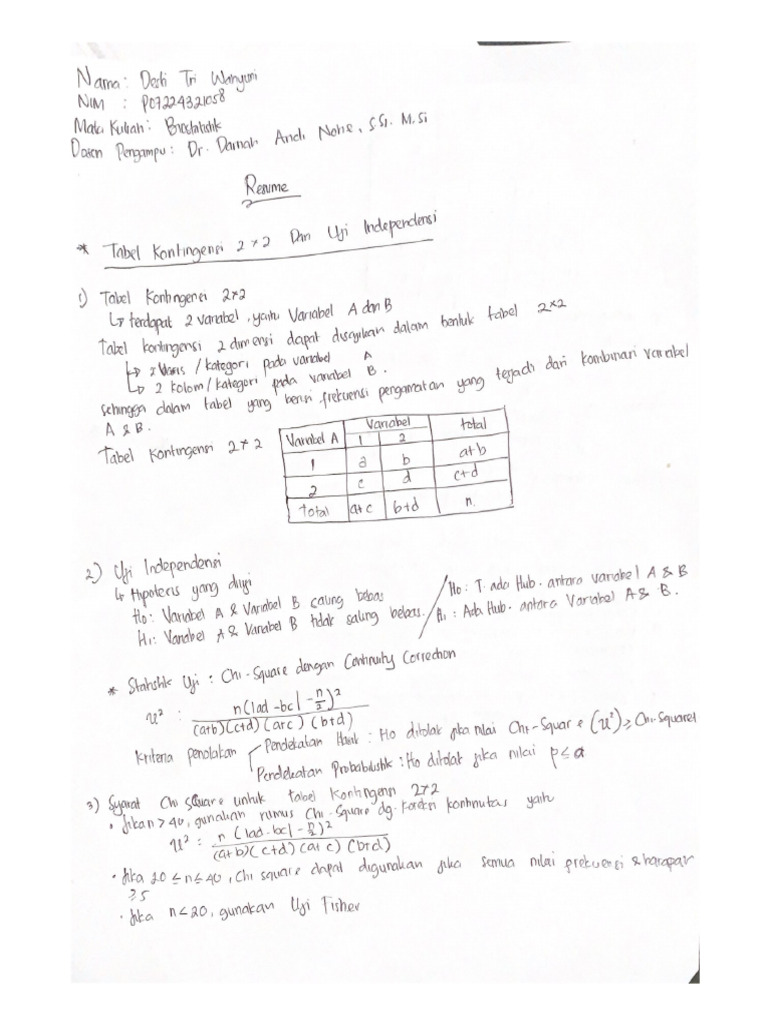 Nama : Desti Tri Wahyuni
NIM : P07224321058
Mata Kuliah : Biostatistik
Dosen Pengampu : Dr. Darnah Andi Nohe, S.Si. M.Si
Resume
* Tabel Kontingensi 2 x 2 Dan Uji Independensi
1) Tabel Kontingensi 2x2
↳ terdapat 2 variabel, yaitu Variabel A dan B
Tabel kontingensi 2 dimensi dapat disajikan dalam bentuk tabel 2x2
↳ 2 baris / kategori pada variabel A
↳ 2 kolom / kategori pada variabel B.
sehingga dalam tabel yang berisi frekuensi pengamatan yang terjadi dari kombinasi variabel
A & B.
Tabel Kontingensi 2x2
Variabel A Variabel total
1 2
1 a b a+b
2 c d c+d
Total a+c b+d n
2) Uji Independensi
↳ Hipotesis yang diuji
Ho: Variabel A & Variabel B saling bebas / Ho : T. ada Hub. antara variabel A & B
H1: Variabel A & Variabel B tidak saling bebas. / H1 : Ada Hub. antara Variabel A & B.
* Statistik Uji : Chi-Square dengan Continuity Correction
x² : n(|ad-bc| - n/2)² / (a+b)(c+d)(a+c)(b+d)
Kriteria penolakan Pendekatan Klasik : Ho ditolak jika nilai Chi-Square (x²) ≥ Chi-Square
Pendekatan Probabilistik : Ho ditolak jika nilai p ≤ α
3) Syarat Chi Square untuk tabel Kontingensi 2x2
• Jika n > 40, gunakan rumus Chi-Square dg. koreksi kontinuitas yaitu
x² : n(|ad-bc| - n/2)² / (a+b)(c+d)(a+c)(b+d)
• Jika 20 ≤ n ≤ 40, Chi square dapat digunakan jika semua nilai frekuensi harapan
≥ 5
• Jika n < 20, gunakan Uji Fisher